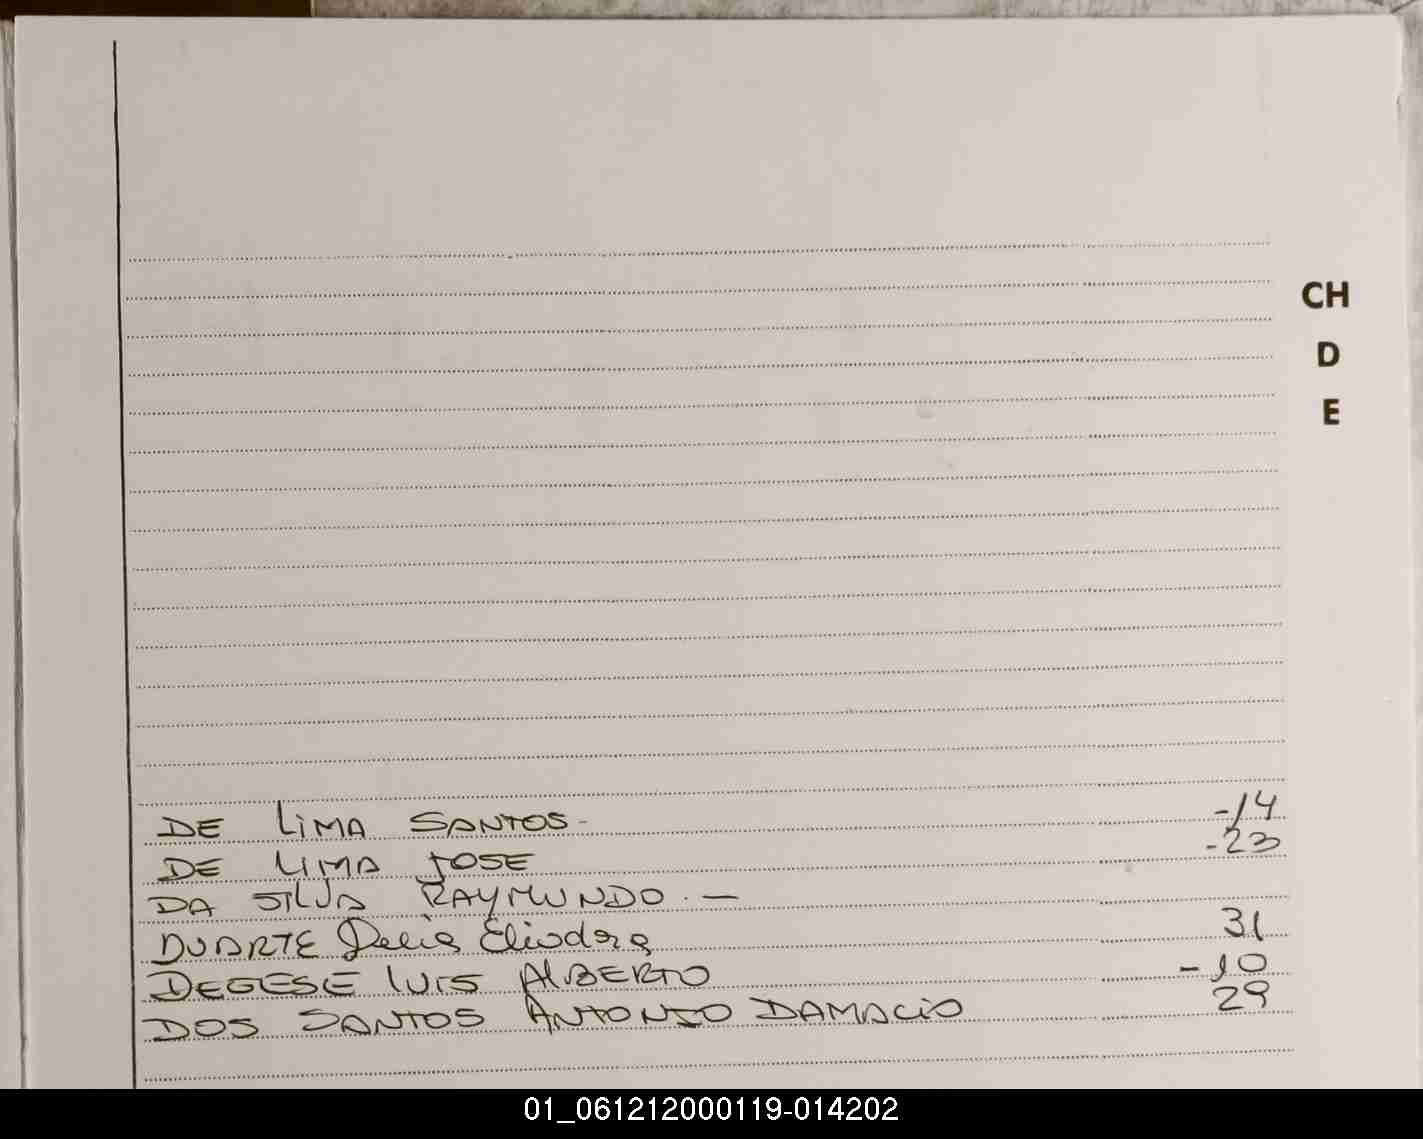 CH
D
E
DE LIMA SANTOS - -14
DE LIMA JOSE -23
DA SILVA RAYMUNDO. —
DUARTE Delia Eliodora 31
DEGESE LUIS ALBERTO -10
DOS SANTOS ANTONIO DAMACIO 29
01_061212000119-014202